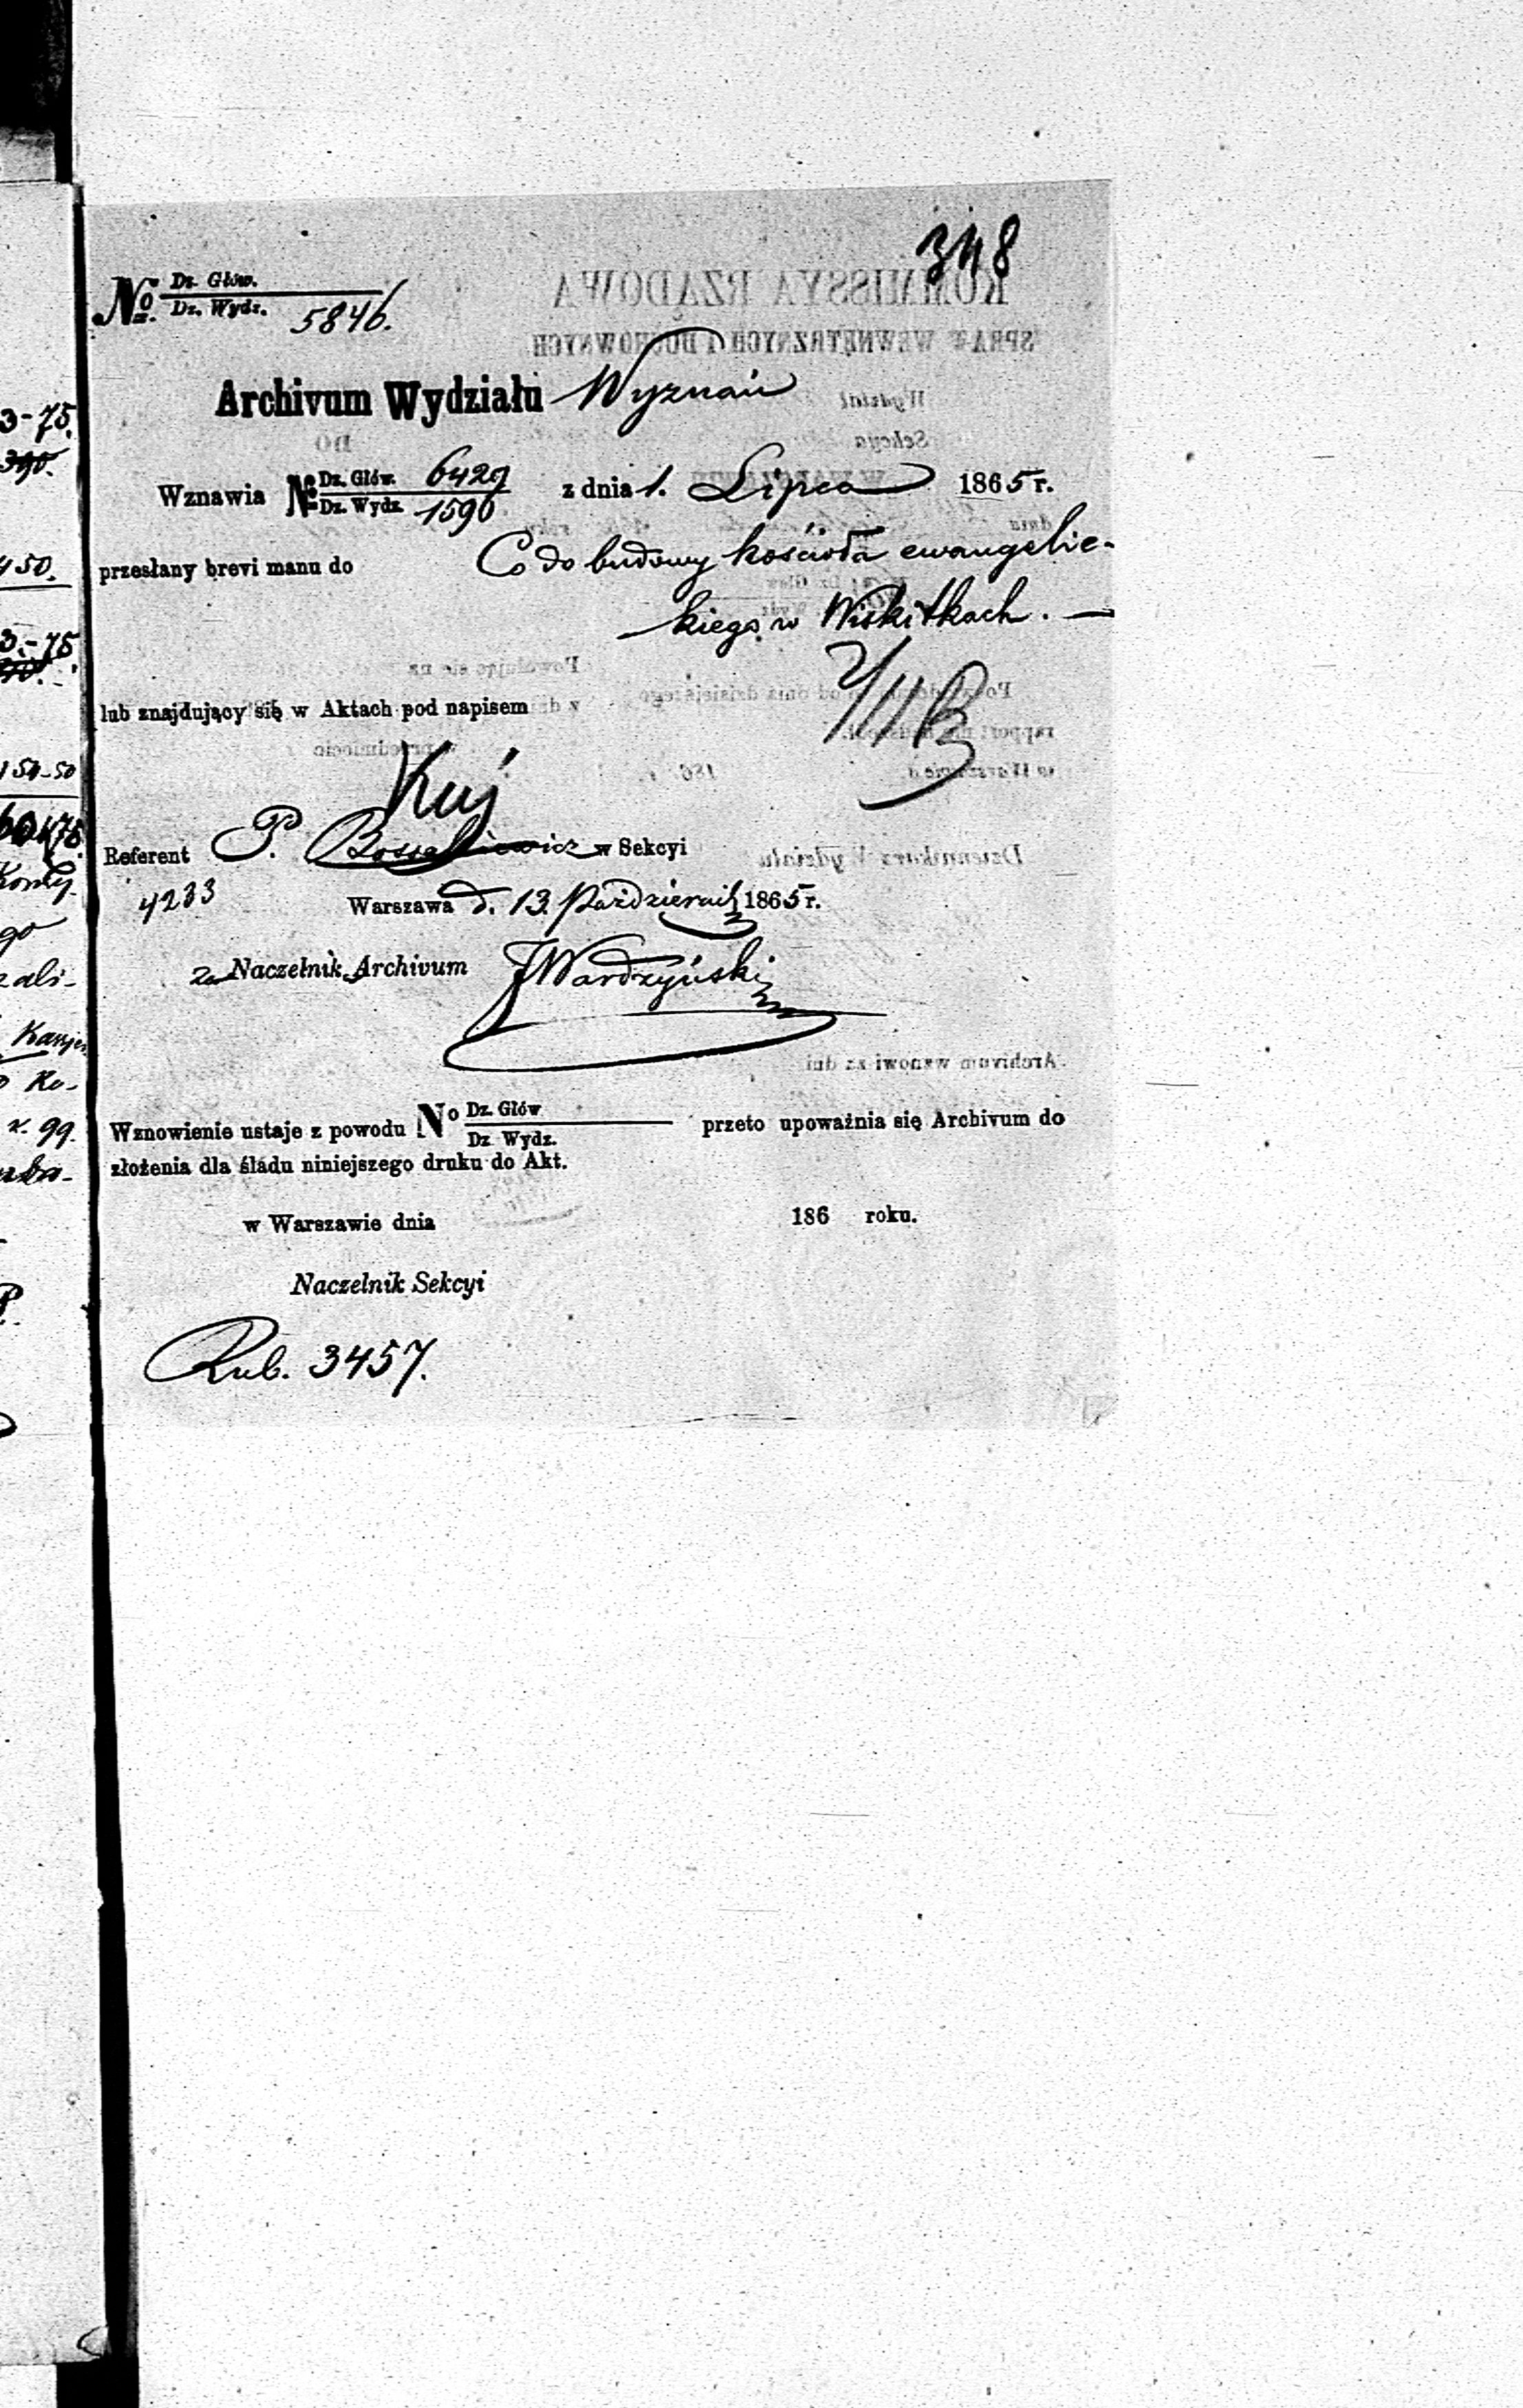 348
No Dz. Głów.
Dz. Wydz. 5846.
Archivum Wydziału Wyznań
Wznawia No Dz. Głów. 6429 z dnia 1. Lipca 1865 r.
Dz. Wydz. 1590
przesłany brevi manu do Co do budowy kościoła ewangelic-
kiego w Wiskitkach. —
lub znajdujący się w Aktach pod napisem
Referent P. w Sekcyi
4233
Warszawa d. 13. Październik 1865 r.
za Naczelnik Archivum JWardzyński
Wznowienie ustaje z powodu No Dz. Głów przeto upoważnia się Archivum do
Dz Wydz.
złożenia dla śladu niniejszego druku do Akt.
w Warszawie dnia 186 roku.
Naczelnik Sekcyi
Rub. 3457.